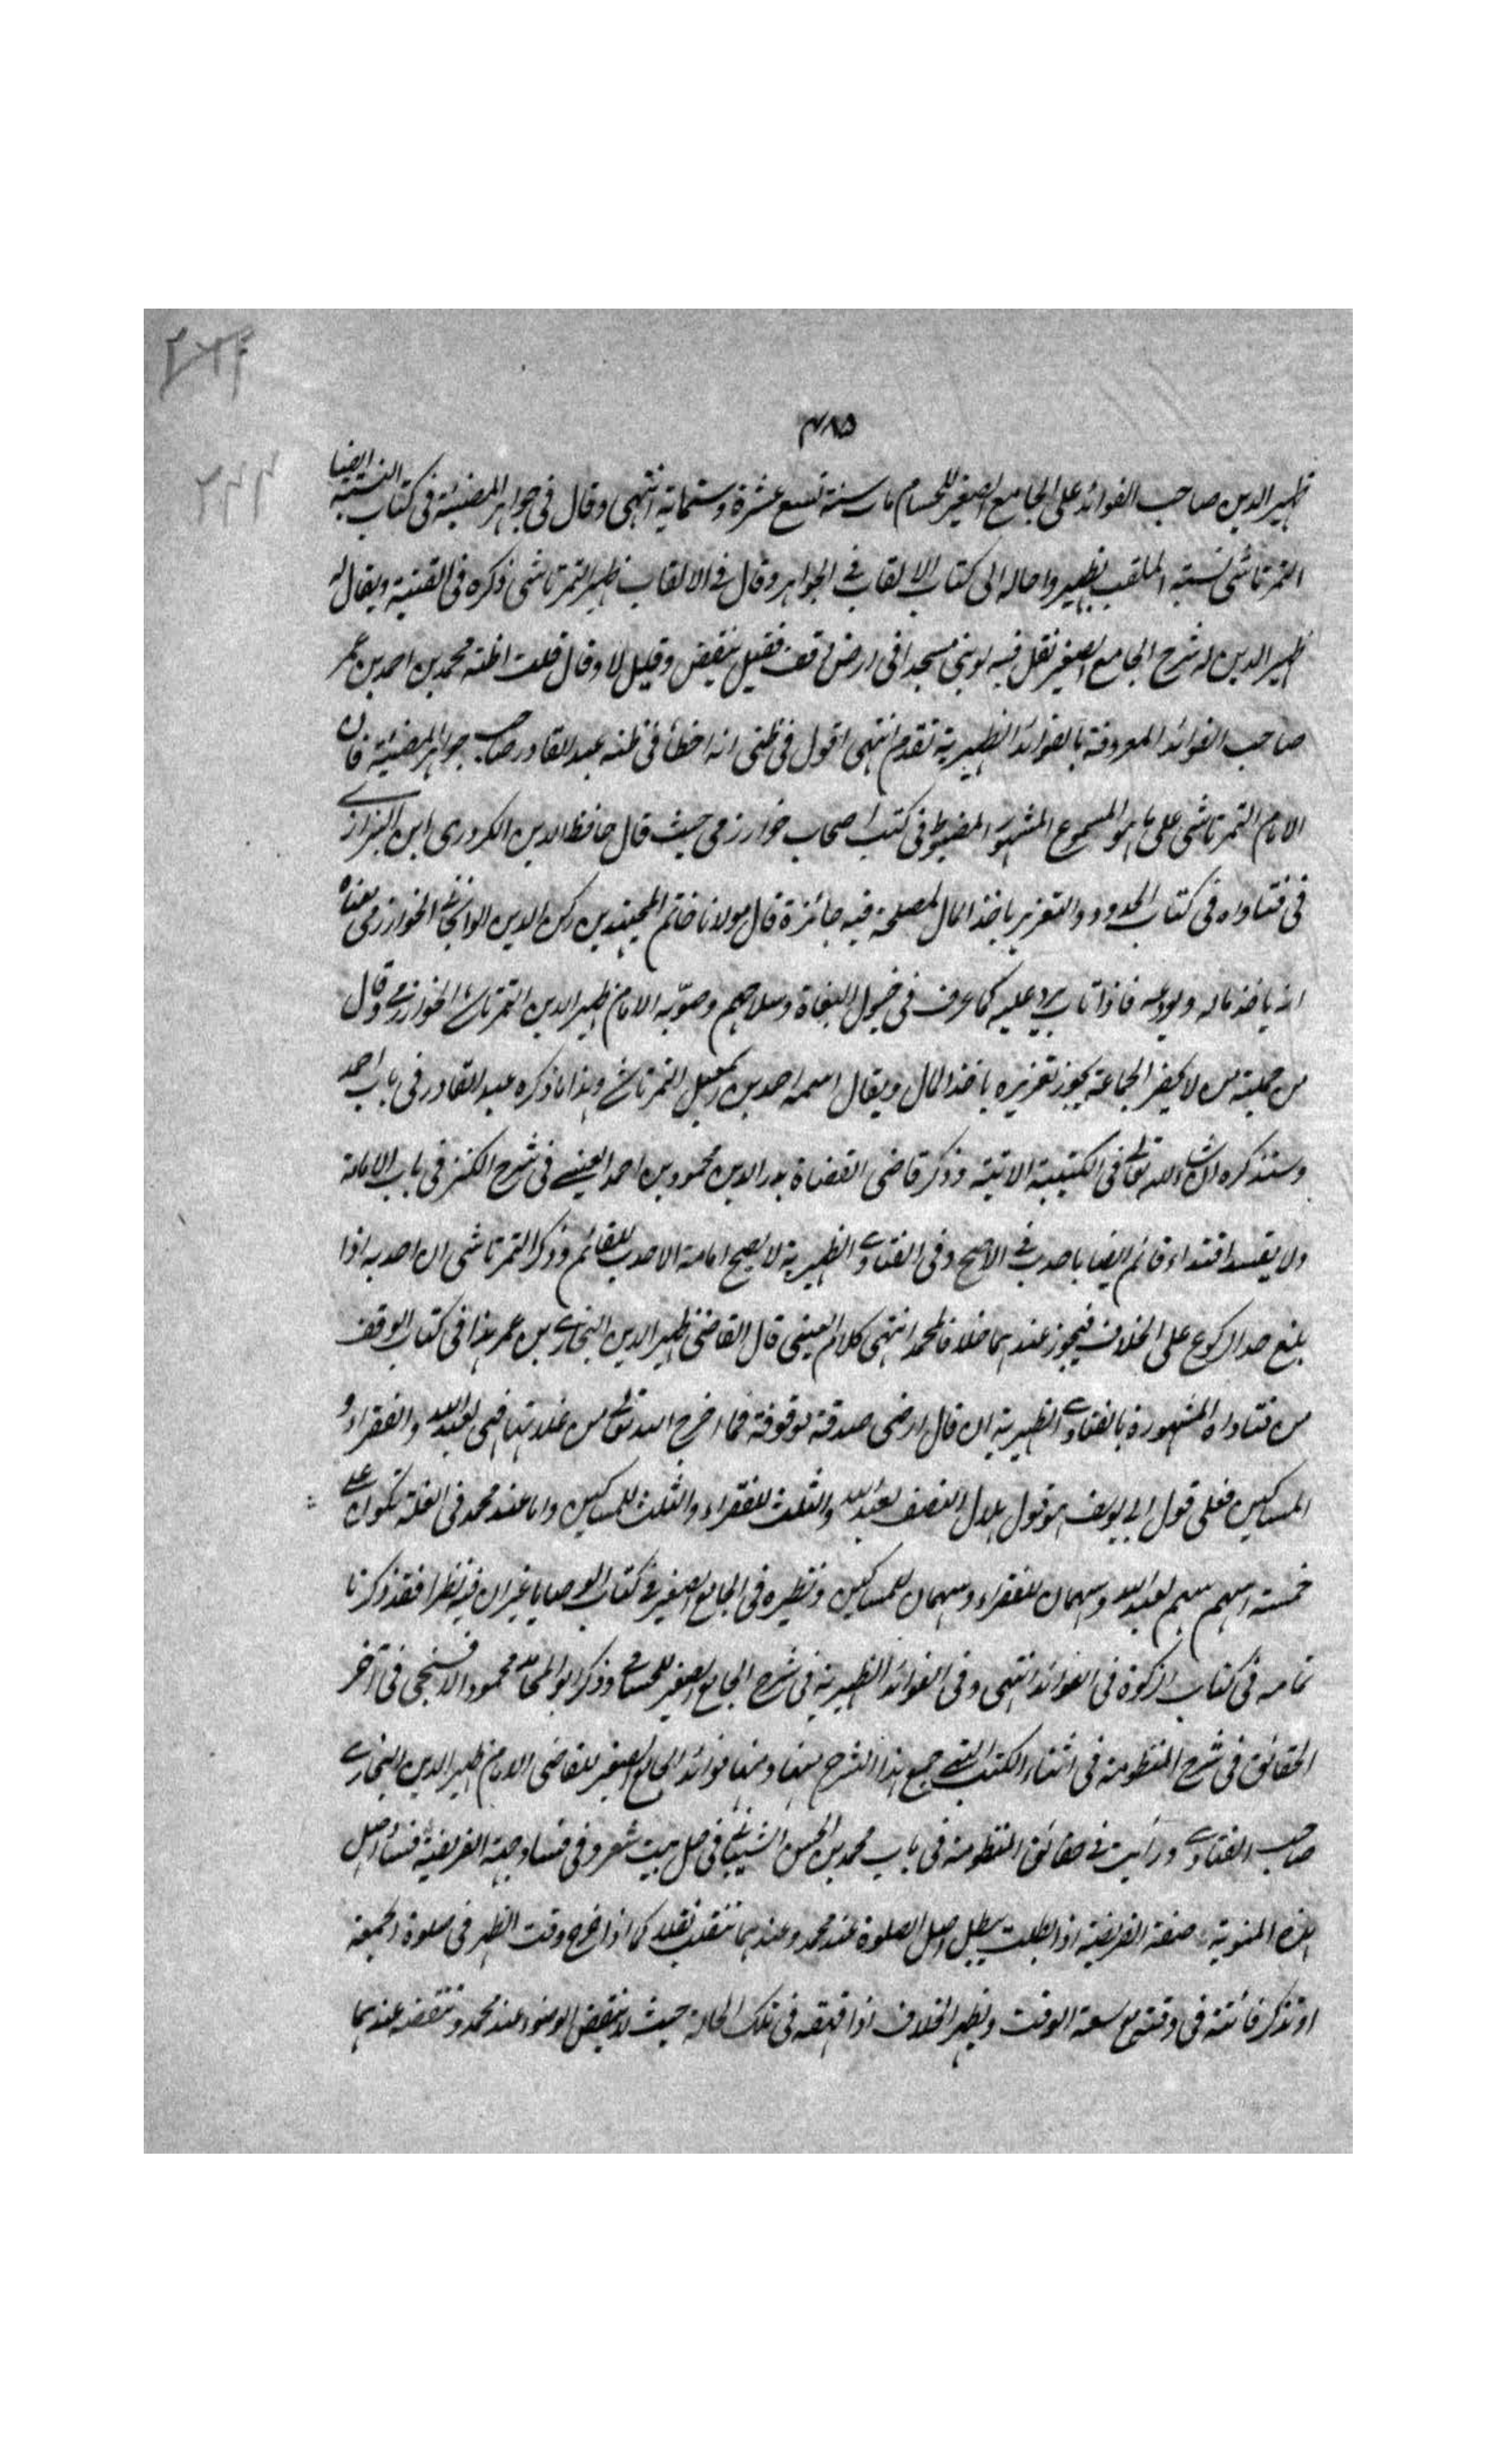 ٤٨٥
ظهير الدين صاحب الفوائد على الجامع الصغير للحسام مات سنة تسع عشرة وستمائة انتهى وقال في جواهر المضيئة في كتاب النسبة ايضا
التمرتاشي نسبته الملقب بظهير واحاله الى كتاب الالقاب في الجواهر وقال في الالقاب ظهير التمرتاشي ذكره في القنية ويقال له
ظهير الدين له شرح الجامع الصغير نقل فيه لو بنى مسجدا في ارض وقف فقيل ينقض وقيل لا وقال قلت اظنه محمد بن احمد بن عمر
صاحب الفوائد المعروفة بالفوائد الظهيرية تقدم انتهى اقول في ظني انه اخطأ في ظنه عبد القادر صاحب جواهر المضيئة فان
الامام التمرتاشي على ما هو المسموع المشهور المضبوط في كتب اصحاب خوارزمي حيث قال حافظ الدين الكردري ابن البزازي
في فتاواه في كتاب الحدود والتعزير باخذ المال لمصلحة فيه جائزة قال مولانا خاتم المجتهدين ركن الدين الوانجاني الخوارزمي معناه
انه ياخذ ماله ويودعه فاذا تاب يرد عليه كما عرف في خيول البغاة وسلاحهم وصوبه الامام ظهير الدين التمرتاشي الخوارزمي وقال
من جملته من لا يحضر الجماعة يجوز تعزيره باخذ المال ويقال اسمه احمد بن اسمعيل التمرتاشي وهذا ما ذكره عبد القادر في باب احمد
وسنذكره ان شاء الله تعالى في الكتيبة الاتية وذكر قاضي القضاة بدر الدين محمود بن احمد العيني في شرح الكنز في باب الامامة
ولا يفسد اقتداء قائم ايضا باحدب في الاصح وفي الفتاوى الظهيرية لا يصح امامة الاحدب للقائم وذكر التمرتاشي ان احدبه اذا
بلغ حد الركوع على الخلاف فيجوز عندهما خلافا لمحمد انتهى كلام العيني قال القاضي ظهير الدين البخاري بن عمر هذا في كتاب الوقف
من فتاواه المشهورة بالفتاوى الظهيرية ان قال ارضي صدقة موقوفة فما اخرج الله تعالى من غلاتها فهي لعبد الله والفقراء و
المساكين فعلى قول ابي يوسف هو قول هلال النصف لعبد الله والثلث للفقراء والثلث للمساكين واما عند محمد في الغلة تكون على
خمسة اسهم سهم لعبد الله وسهمان للفقراء وسهمان للمساكين ونظيره في الجامع الصغير في كتاب الوصايا غير ان فيه نظرا فقد ذكرنا
تمامه في كتاب الزكوة في الفوائد انتهى وفي الفوائد الظهيرية في شرح الجامع الصغير للحسامي وذكر ابو المحامد محمود الافشنجي في آخر
الحقائق في شرح المنظومة في اثناء الكتب التي جمع هذا الشرح منها ومنها فوائد الجامع الصغير للقاضي الامام ظهير الدين البخاري
صاحب الفتاوى ورأيت في حقائق المنظومة في باب محمد بن الحسن الشيباني في حل بيت شعر وفي فساد جهة الفريضة فساد اصل
هذه المنوية صفة الفريضة اذا بطلت يبطل اصل الصلوة عند محمد وعندهما تنقلب نفلا كما اذا خرج وقت الظهر في صلوة الجمعة
او تذكر فائتة في وقتية مع سعة الوقت ويظهر الخلاف اذا قهقه في تلك الحالة حيث لا ينقض الوضوء عند محمد وتنقضه عندهما